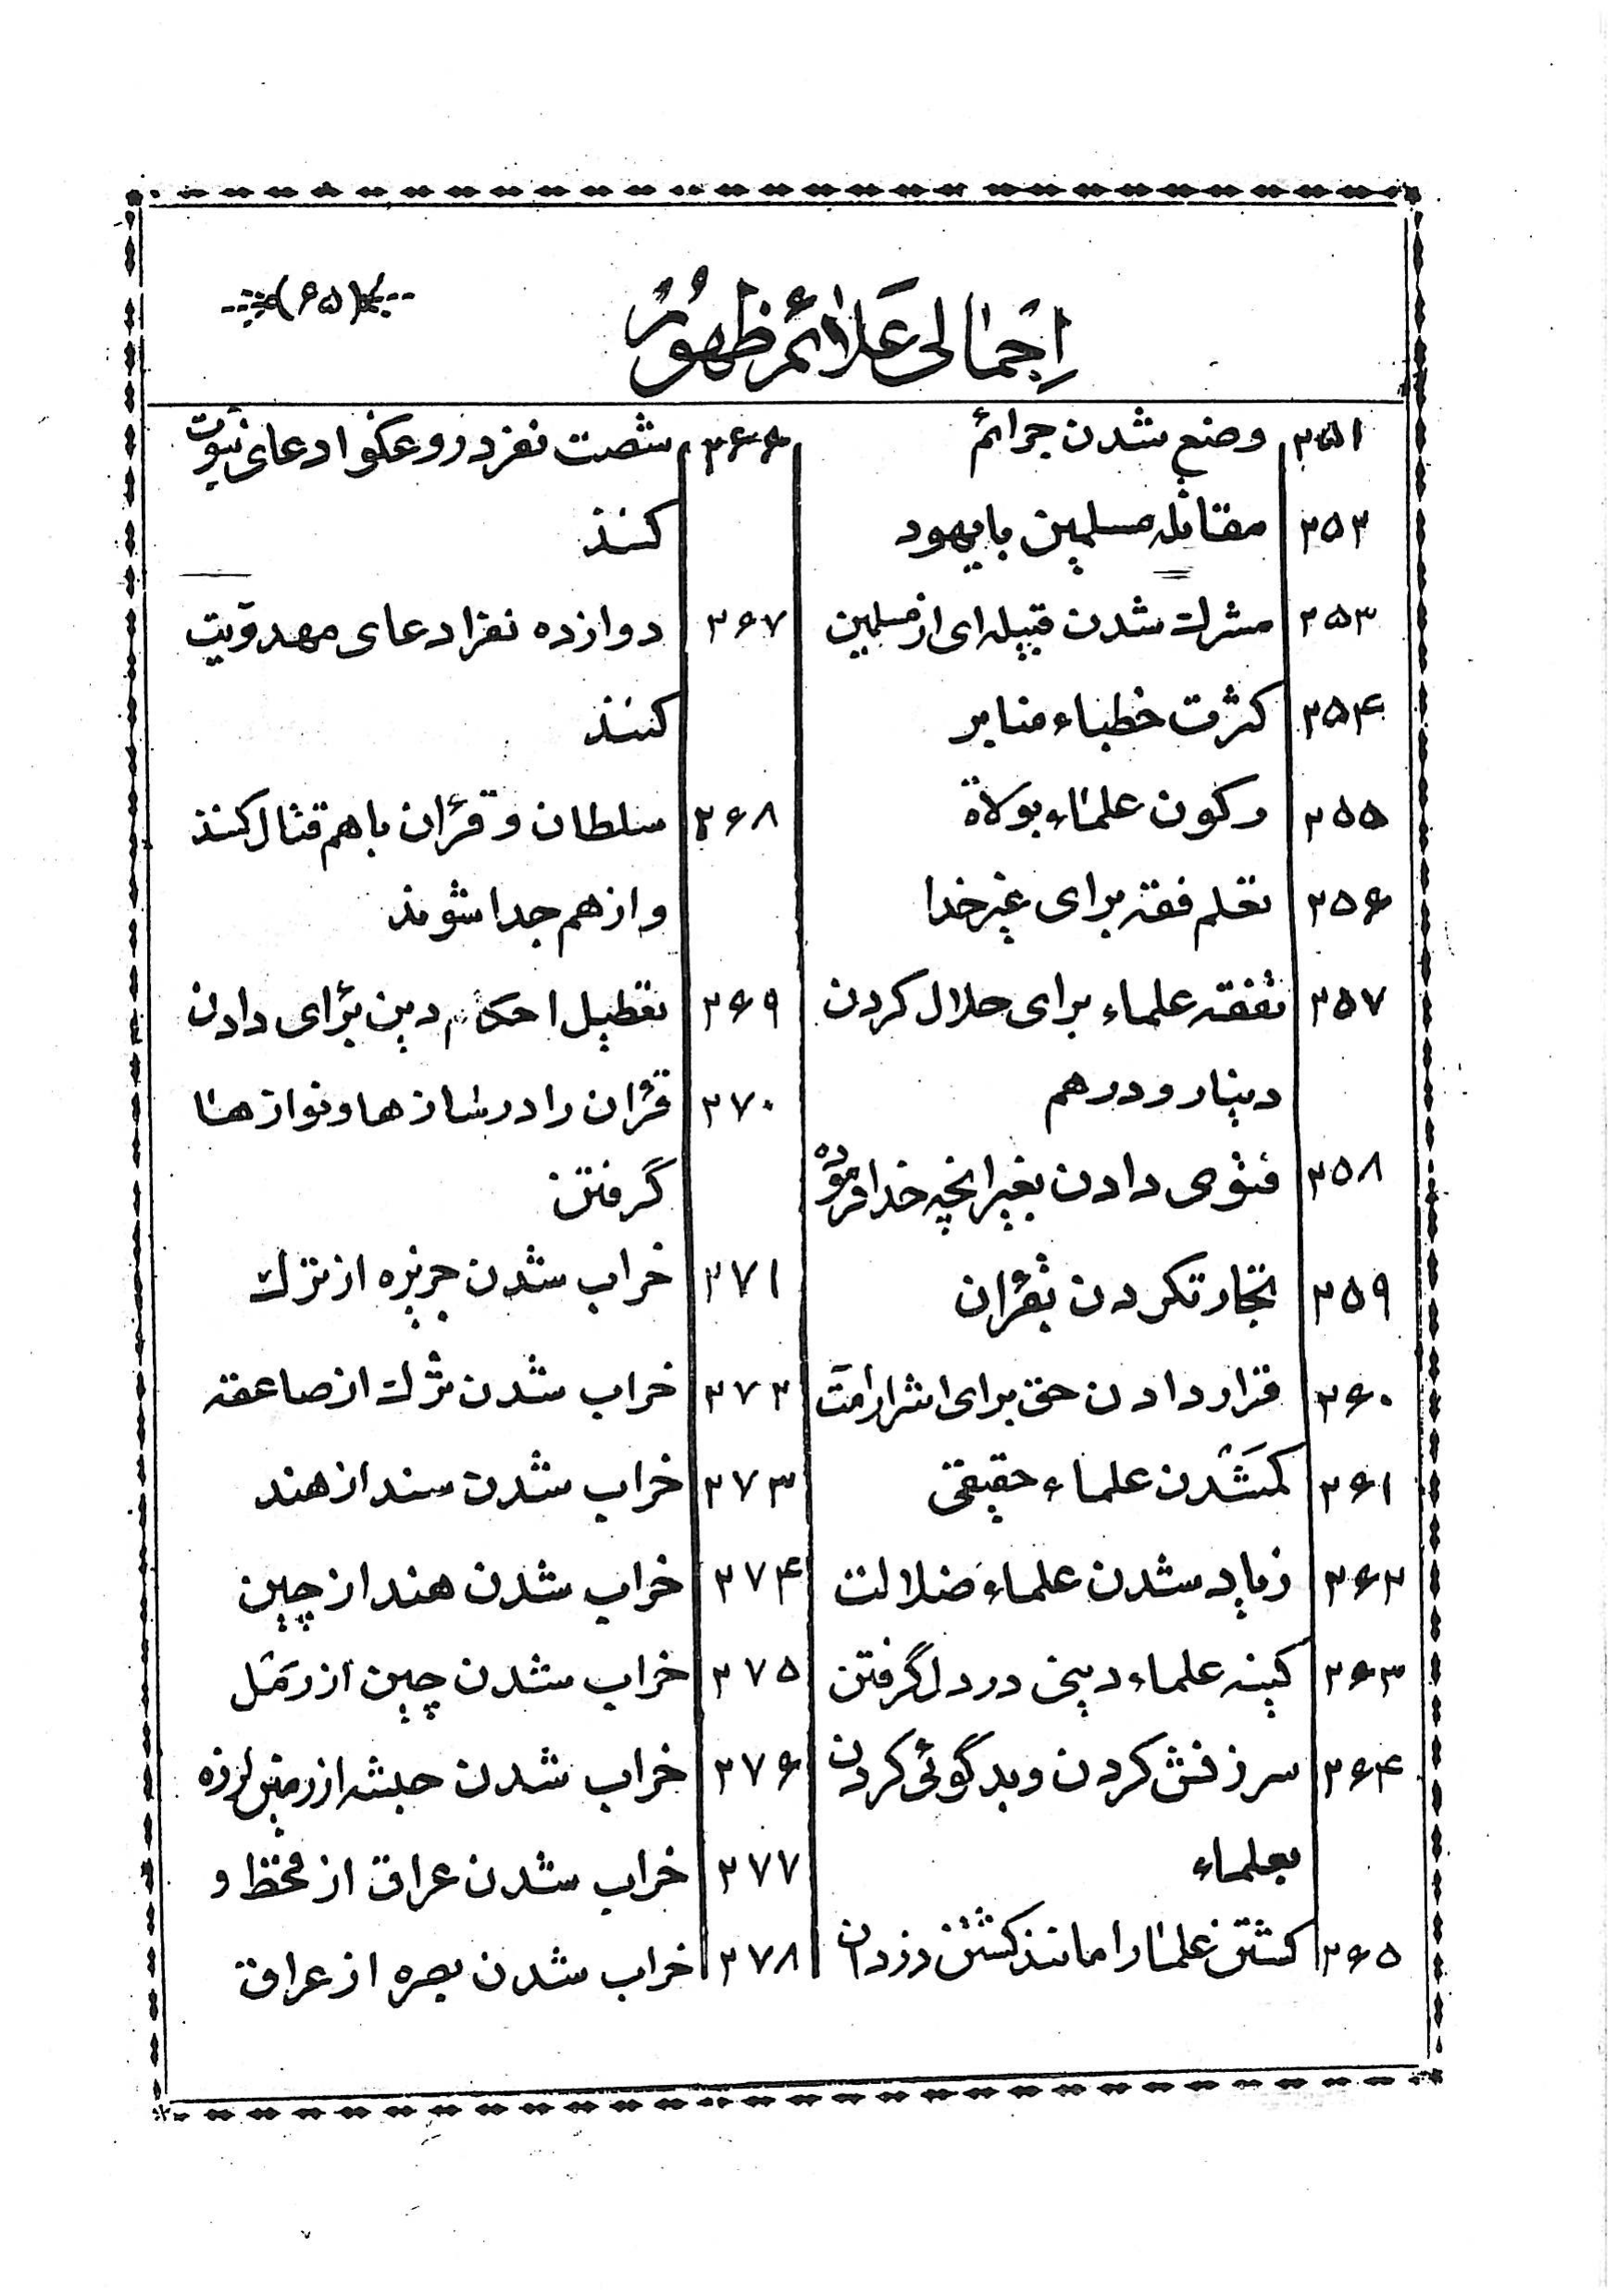 (۶۵)
اِجْمٰالی عَلٰائم ظهُورُ
۲۵۱ وضع شدن جرائم
۲۵۲ مقاتله مسلمین با یهود
۲۵۳ مشرک شدن قبیله ای از مسلمین
۲۵۴ کثرت خطباء منابر
۲۵۵ رکون علمٰاء بولاة
۲۵۶ تعلم فقه برای غیر خدا
۲۵۷ تفقه علماء برای حلال کردن
دینار و درهم
۲۵۸ فتوی دادن بغیر انچه خدا فرموده
۲۵۹ تجارت کردن بقرٰان
۲۶۰ قرار دادن حق برای اشرار امت
۲۶۱ کمشَدن علماء حقیقی
۲۶۲ زیاد شدن علماء ضلالت
۲۶۳ کینه علماء دینی در دل گرفتن
۲۶۴ سرزنش کردن و بدگوئی کردن
بعلماء
۲۶۵ کشتن علمٰا را مانند کشتن دزدان
۲۶۶ شصت نفر دروغگو ادعای نبوت
کنند
۲۶۷ دوازده نفر ادعای مهدویت
کنند
۲۶۸ سلطان و قرٰان با هم قتال کنند
و از هم جدا شوند
۲۶۹ تعطیل احکام دین برٰای دادن
۲۷۰ قرٰان را در سٰازها و نوازهٰا
گرفتن
۲۷۱ خراب شدن جزیره از ترک
۲۷۲ خراب شدن ترک از صاعقه
۲۷۳ خراب شدن سند از هند
۲۷۴ خراب شدن هند از چین
۲۷۵ خراب شدن چین از رَمَل
۲۷۶ خراب شدن حبشه از زمین لرزه
۲۷۷ خراب شدن عراق از قحط و
۲۷۸ خراب شدن بصره از عراق